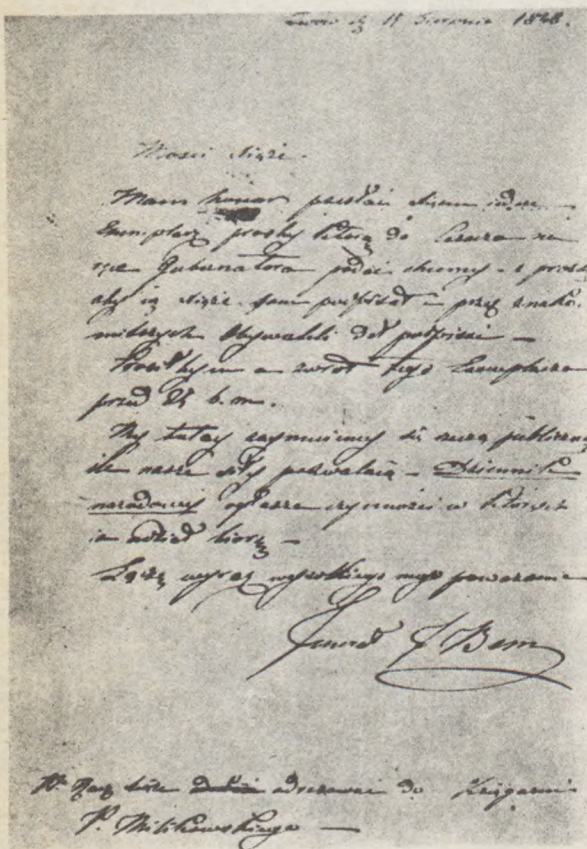 Lwów dz 15 Sierpnia 1848.
Mości Xiąże.
Mam honor przesłać Xiązu jeden
Exemplarz prośby którą do Cesarza na
ręce Gubernatora podać chcemy – i proszę
aby ią Xiąże sam podpisał – i przez znako-
mitszych Obywateli dał podpisać –
Prosiłbym o zwrot tego Exemplarza
przed 25 b. m.
My tutay zaymuiemy się rzeczą publiczną
ile nasze siły pozwalaią – Dziennik
narodowy ogłasza czynności w których
ia udział biorę –
Łączę wyraz wysokiego mego poważania
Jenerał J Bem
adresować do Księgarni
P. Milikowskiego —